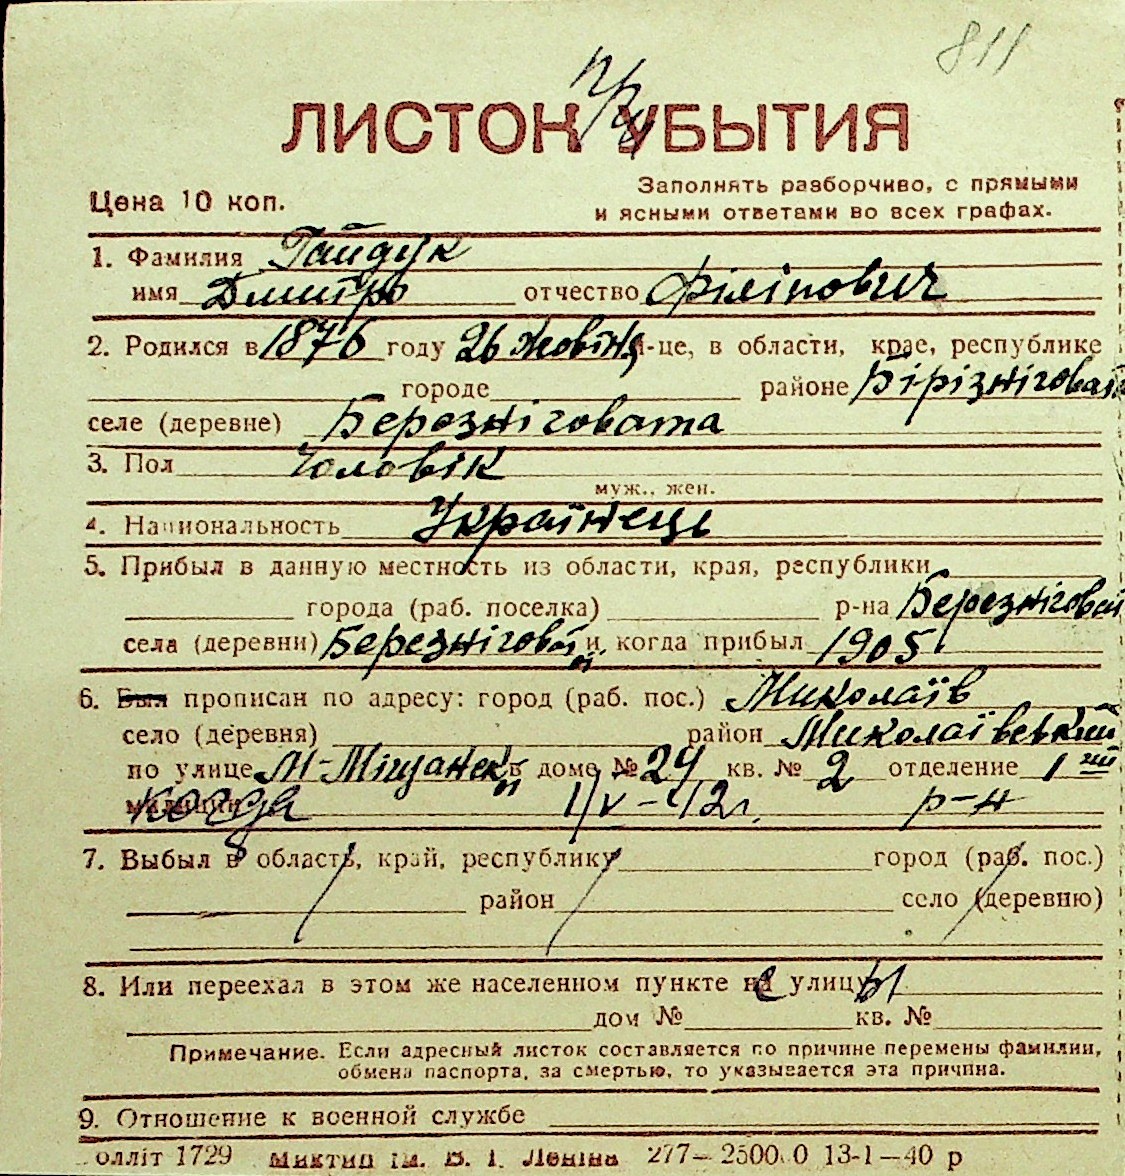 811
ЛИСТОК УБЫТИЯ
Цена 10 коп.
Заполнять разборчиво, с прямыми
и ясными ответами во всех графах.
1. Фамилия Гайдук
имя Дмитро отчество Філіпович
2. Родился в 1876 году 26 жовтня м-це, в области, крае, республике
городе районе Бірізніговат
селе (деревне) Березніговата
3. Пол Чоловік
муж., жен.
4. Национальность Українець
5. Прибыл в данную местность из области, края, республики
города (раб. поселка) р-на Березніговат
села (деревни) Березніговатой и когда прибыл 1905
6. Был прописан по адресу: город (раб. пос.) Миколаїв
село (деревня) район Миколаївський
по улице М-Міщанськ в доме № 29 кв. № 2 отделение 1ий
милиции когда 1/IV-42г. р-н
7. Выбыл в область, край, республику город (раб. пос.)
район село (деревню)
8. Или переехал в этом же населенном пункте на улицу
дом № кв. №
Примечание. Если адресный листок составляется по причине перемены фамилии,
обмена паспорта, за смертью, то указывается эта причина.
9. Отношение к военной службе
олліт 1729 Миктип ім. В. І. Леніна 277—25000 13-1—40 р